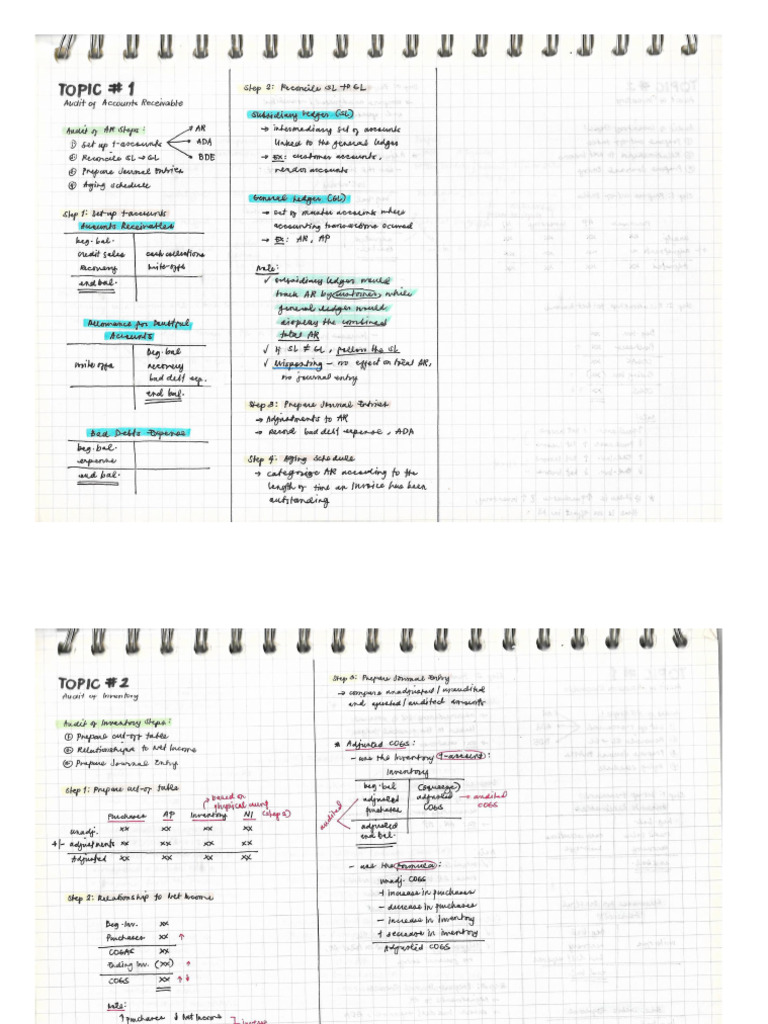 TOPIC # 1
Audit of Accounts Receivable
Audit of AR Steps:
① Set up t-accounts
AR
ADA
BDE
② Reconcile SL → GL
③ Prepare Journal Entries
④ Aging schedule
Step 1: Set-up t-accounts
Accounts Receivables
beg. bal.
credit sales cash collections
recovery write-offs
end bal.
Allowance for Doubtful
Accounts
beg. bal
write offs recovery
bad debt exp.
end bal.
Bad Debts Expense
beg. bal.
expense
end bal.
Step 2: Reconcile SL → to GL
Subsidiary Ledger (SL)
→ intermediary set of accounts
linked to the general ledger
→ EX: customer accounts,
vendor accounts
General Ledger (GL)
→ set of master accounts where
accounting transactions occured
→ EX: AR, AP
Note:
✓ subsidiary ledger would
track AR by customer, while
general ledger would
display the combined
total AR
✓ If SL ≠ GL, follow the SL
✓ Misposting – no effect on total AR,
no journal entry
Step 3: Prepare Journal Entries
→ Adjustments to AR
→ Record bad debt expense, ADA
Step 4: Aging Schedule
→ categorize AR according to the
length of time an invoice has been
outstanding
TOPIC # 2
Audit of Inventory
Audit of Inventory Steps:
① Prepare cut-off table
② Relationships to Net Income
③ Prepare Journal Entry
Step 1: Prepare cut-off table
based on
physical count
Purchases AP Inventory NI (step 2)
unadj. xx xx xx xx
+/- adjustments xx xx xx xx
Adjusted xx xx xx xx
Step 2: Relationship to Net Income
Beg. Inv. xx
Purchases xx ↑
COGAS xx
Ending Inv. (xx) ↑
COGS xx ↑↓
Note:
↑ purchases ↓ Net Income
Step 3: Prepare Journal Entry
→ compare unadjusted / unaudited
and ajusted / audited amounts
* Adjusted COGS:
– use the inventory t-account:
Inventory
beg. bal (squeeze)
adjusted adjusted → audited
purchases COGS COGS
audited
adjusted
end bal.
– use the formula:
unadj. COGS
+ increase in purchases
– decrease in purchases
– increase in inventory
+ decrease in inventory
Adjusted COGS